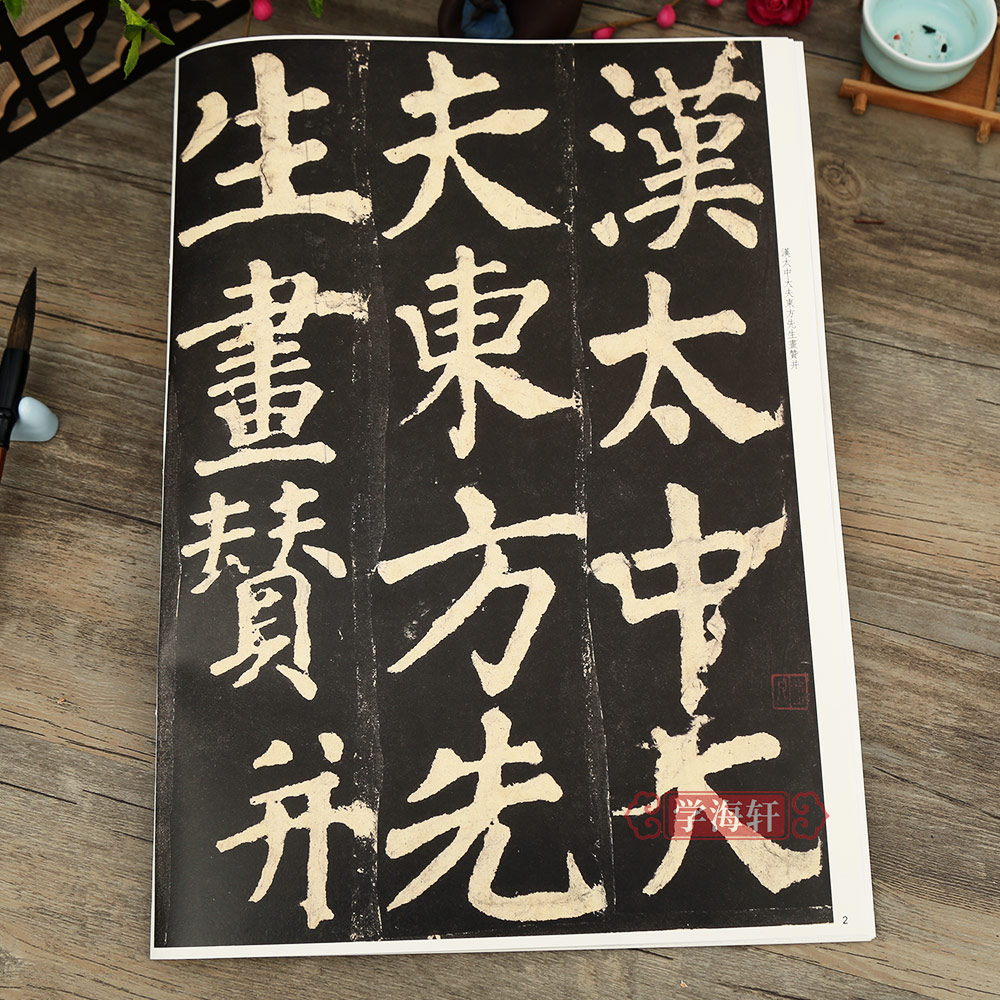 漢太中大
夫東方先
生畫贊并
漢太中大夫東方先生畫贊并
学海轩
2